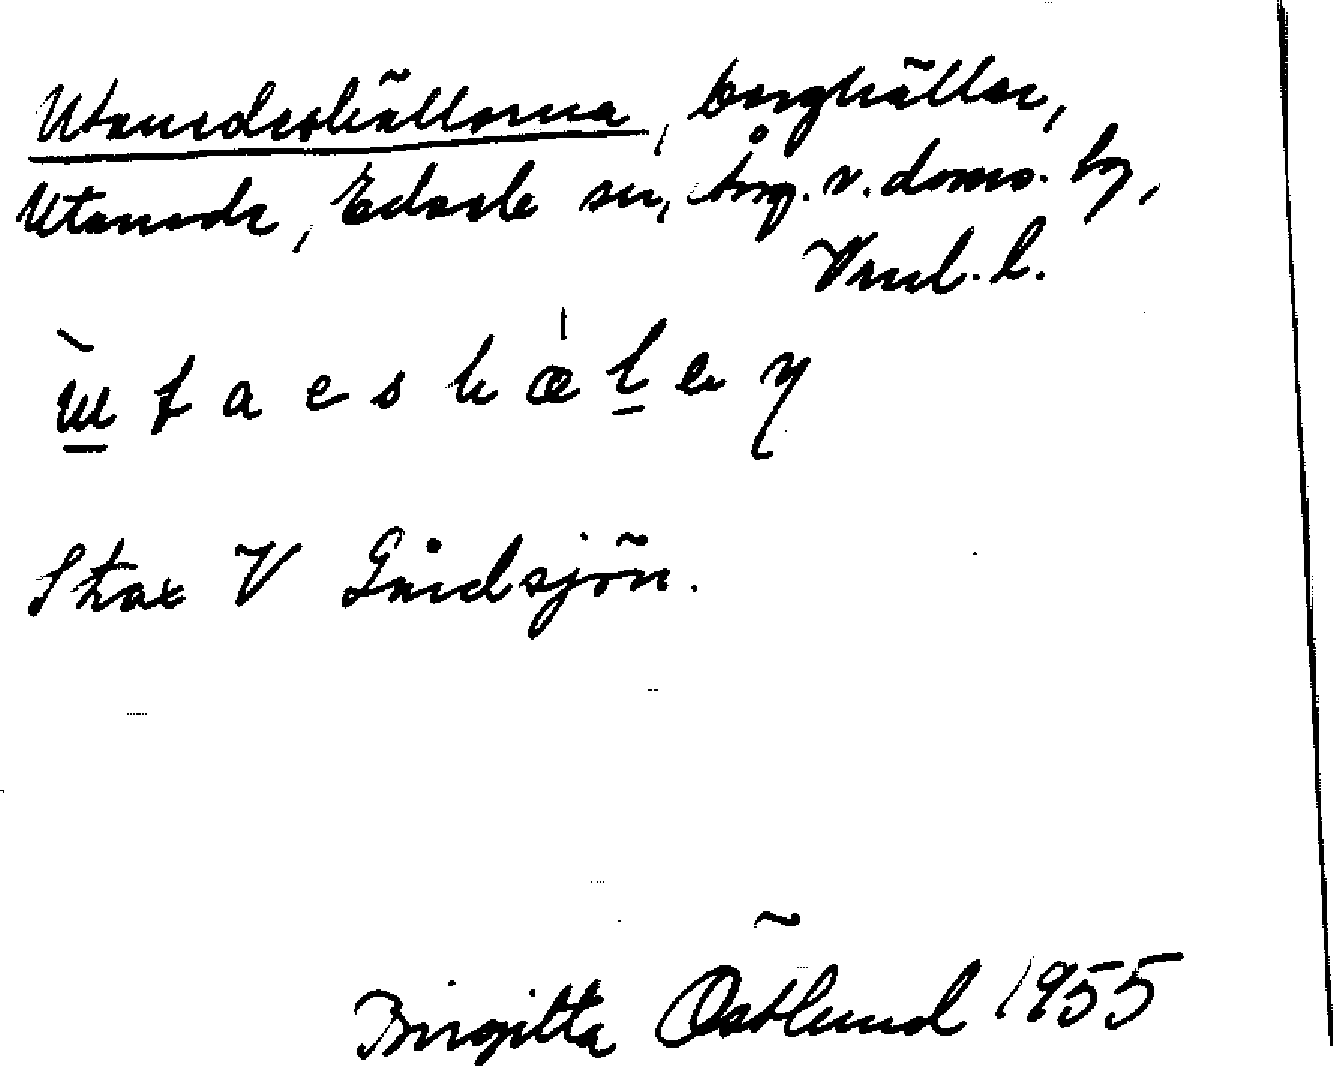 Utanedeshällorna, berghällar,
Utanede, Edsele sn, Ång. v. doms. bg,
Vnl. l.
u t a e s h æ l e r
Strax V Gåridsjön.
Birgitta Östlund 1955